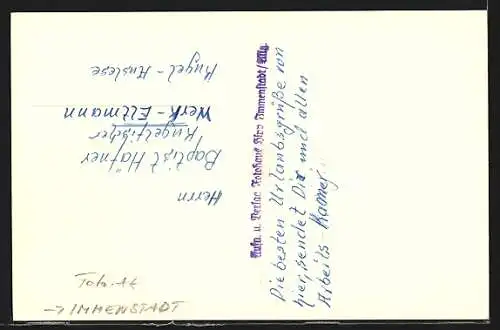 Die besten Urlaubsgrüße von
hier, sendet Dir und allen
Arbeits-Kamer.
Aufn. u. Verlag Fotohaus Immenstadt/Allg.
Herrn
Baptist Hafner
Kugelfischer
Werk-Eltmann
Kugel-Auslese
→ IMMENSTADT